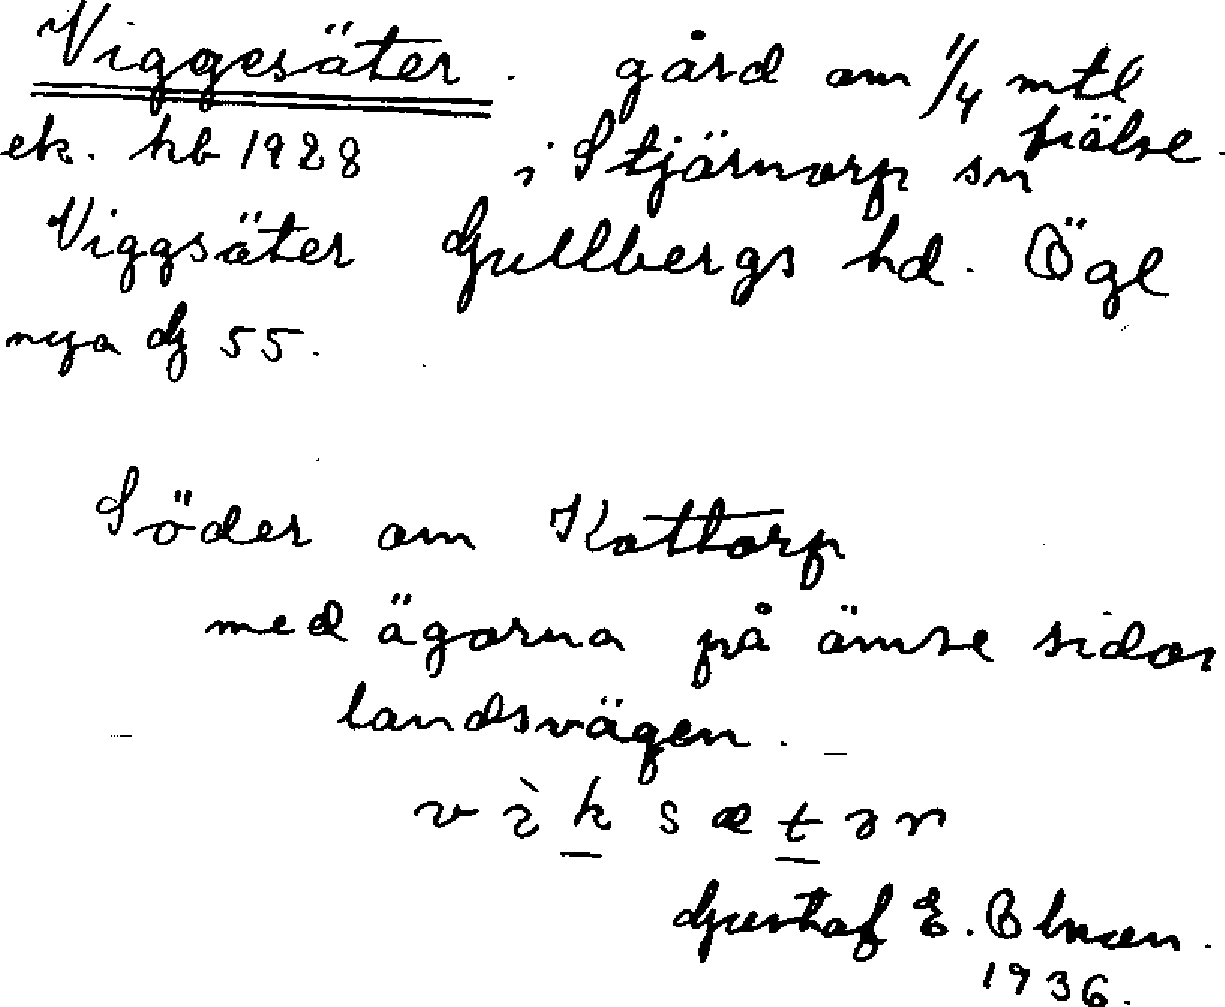 Viggesäter. gård om 1/4 mtl frälse.
ek. kb 1928 i Stjärnorp sn
Viggsäter Gullbergs hd. Ögl
nya G 55.
Söder om Kattorp
med ägorna på ömse sidor
landsvägen.
v ì k s æ t ə r
Gustaf E. Olsson.
1936.